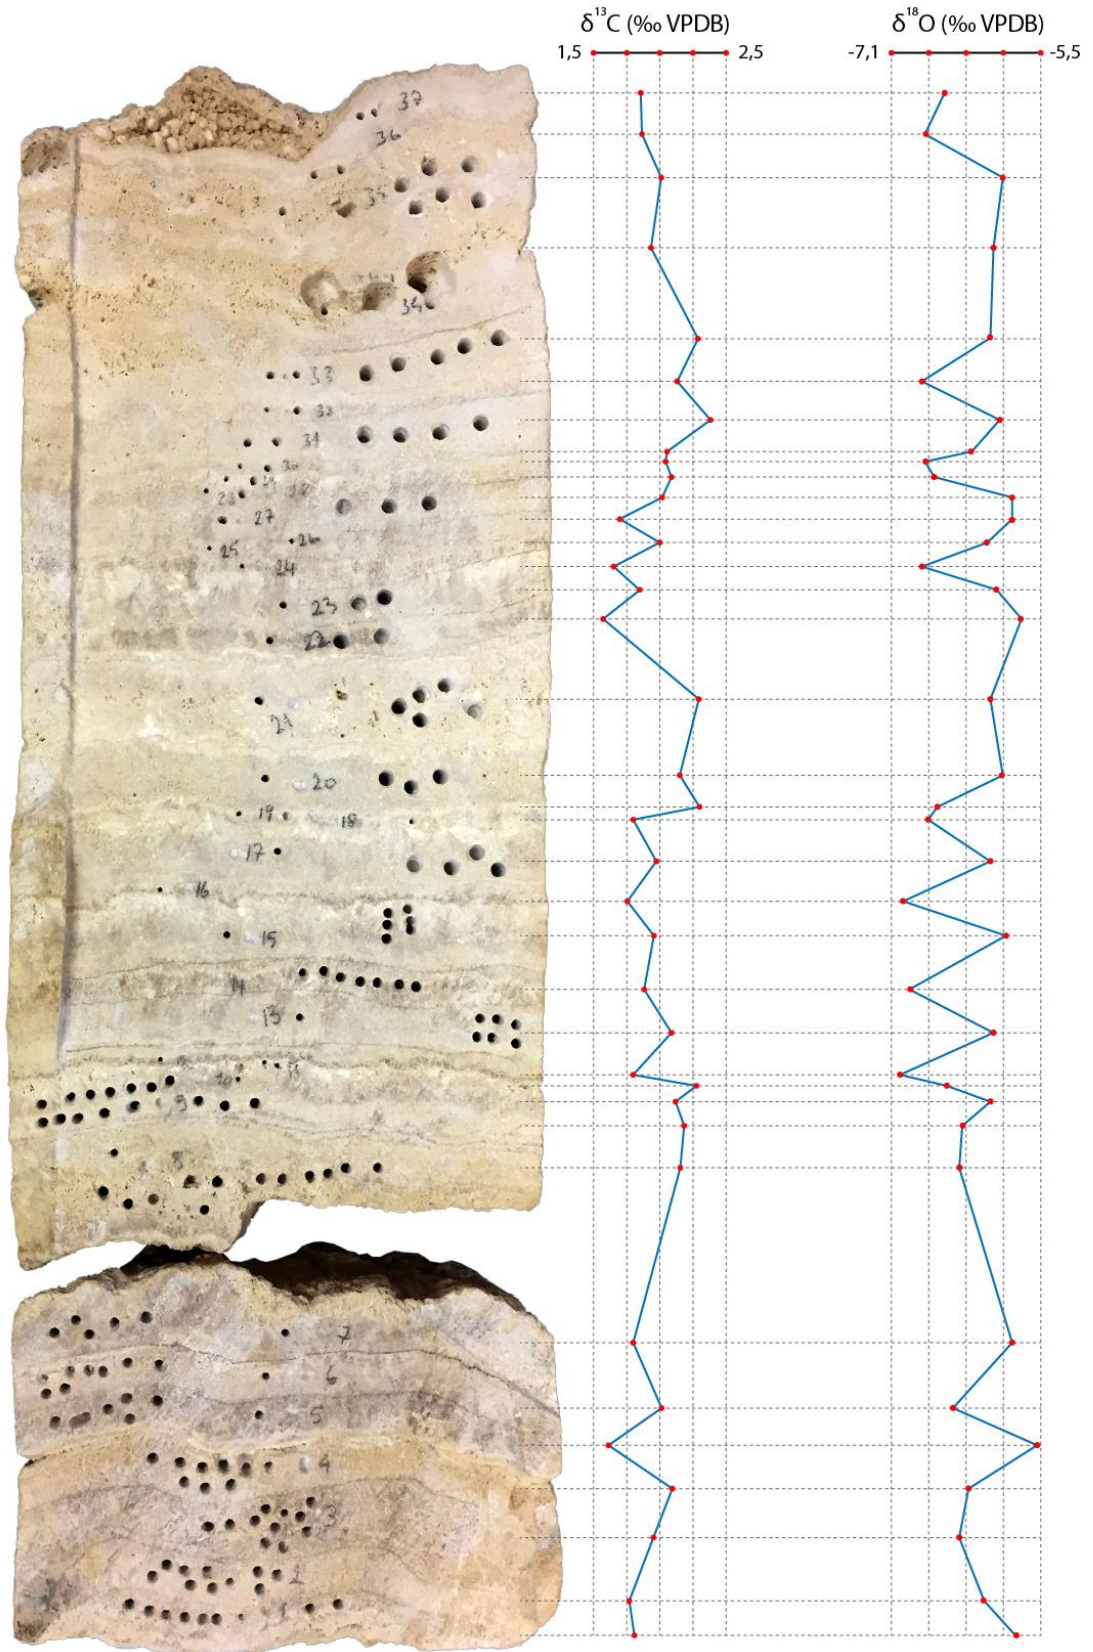 δ¹³C (‰ VPDB) δ¹⁸O (‰ VPDB)
1,5 2,5 -7,1 -5,5
37
36
35
34
33
32
31
30
29
28
27
26
25
24
23
22
21
20
19 18
17
16
15
14
13
11
10
9
8
7
6
5
4
3
2
1